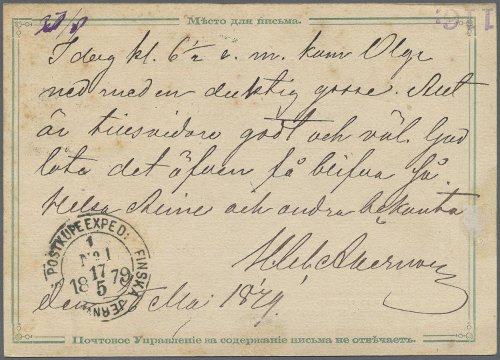 Мѣсто для письма.
I dag kl. 6½ e. m. kom Olga
ned med en duktig gosse. Allt
är tillsvidare godt och väl. Gud
låte det äfven få blifva så.
Helsa Aline och andra bekanta
POSTKUPÉ EXPED: FINSKA JERNV
1
No 1
17
18 79
5
den Maj 1879.
Почтовое Управленіе за содержаніе письма не отвѣчаетъ.